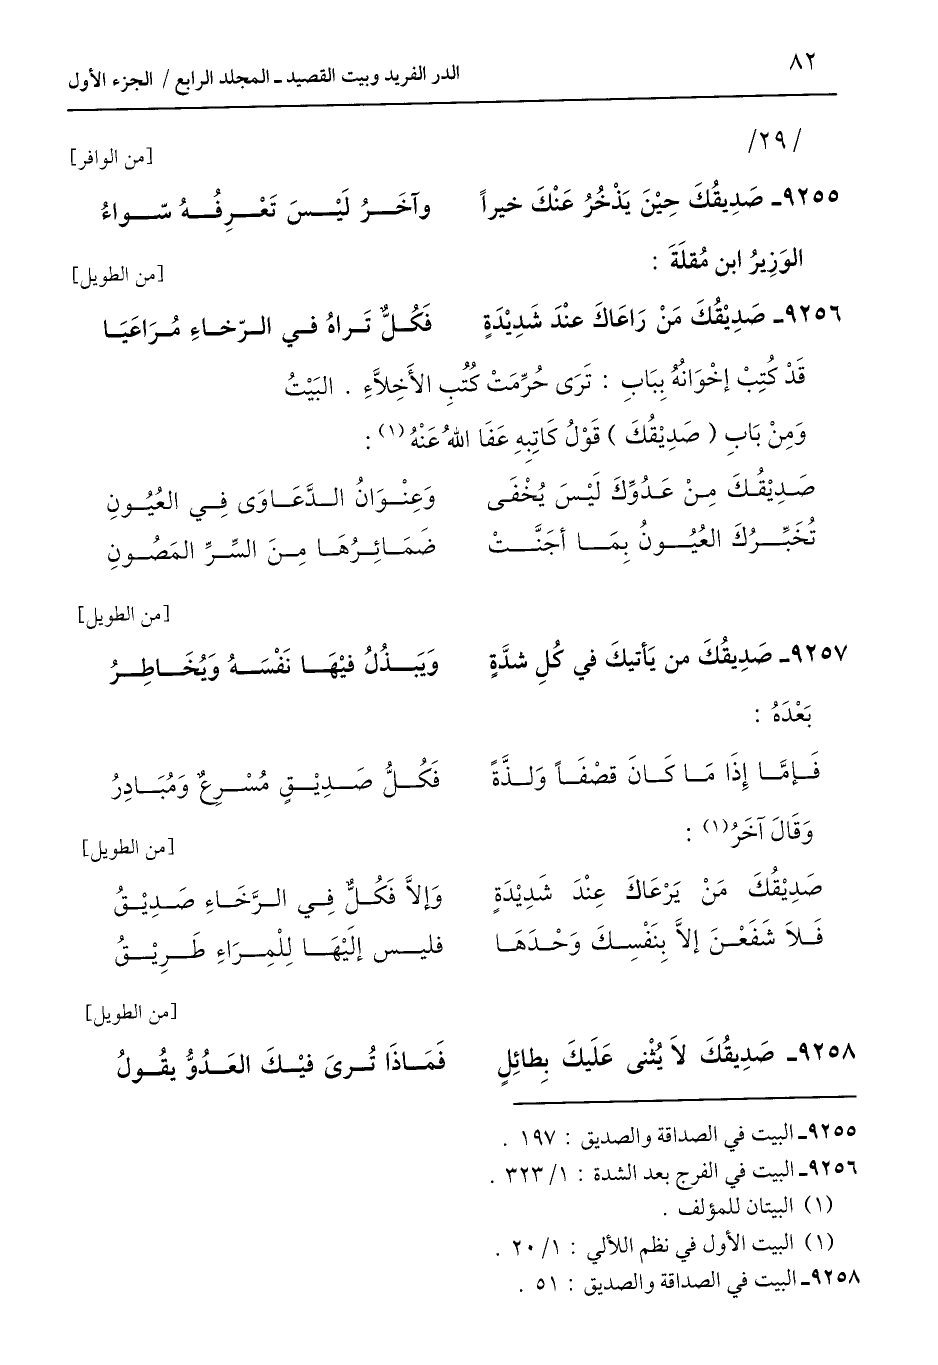 ٨٢
الدر الفريد وبيت القصيد ـ المجلد الرابع / الجزء الأول
/٢٩/
[من الوافر]
٩٢٥٥ـ صَدِيقُكَ حِيْنَ يَذْخُرُ عَنْكَ خيراً وآخَرُ لَيْسَ تَعْرِفُهُ سّواءُ
الوَزِيرُ ابن مُقلَةَ :
[من الطويل]
٩٢٥٦ـ صَدِيْقُكَ مَنْ رَاعَاكَ عندَ شَدِيْدَةٍ فَكُلٌّ تَراهُ في الرّخاءِ مُرَاعَيَا
قَدْ كُتِبْ إخْوَانُهُ بِبَابِ : تَرَى حُرِّمَتْ كُتُبِ الأَخِلاَّءِ . البَيْتُ
وَمِنْ بَابِ ( صَدِيْقُكَ ) قَوْلُ كَاتِبِهِ عَفَا اللهُ عَنْهُ(١) :
صَدِيْقُكَ مِنْ عَدُوِّكَ لَيْسَ يُخْفَى وَعِنْوَانُ الدَّعَاوَى فِي العُيُونِ
تُخَبِّرُكَ العُيُونُ بِمَا أجَنَّتْ ضَمَائِرُهَا مِنَ السِّرِّ المَصُونِ
[من الطويل]
٩٢٥٧ـ صَدِيقُكَ من يَأتيكَ في كُلِ شدَّةٍ وَيَبذُلُ فيْهَا نَفْسَهُ وَيُخَاطِرُ
بَعْدَهُ :
فَإمَّا إذَا مَا كَانَ قصْفَاً وَلذَّةً فَكُلُّ صَدِيْقٍ مُسْرِعٌ وَمُبَادِرُ
وَقَالَ آخَرُ(١) :
[من الطويل]
صَدِيْقُكَ مَنْ يَرْعَاكَ عِنْدَ شَدِيْدَةٍ وَإلاَّ فَكُلٌّ فِي الرَّخَاءِ صَدِيْقُ
فَلاَ شَفَعْنَ إلاَّ بِنَفْسِكَ وَحْدَهَا فليس إلَيْهَا لِلْمِرَاءِ طَرِيْقُ
[من الطويل]
٩٢٥٨ـ صَدِيقُكَ لاَ يُثْنى عَلَيكَ بِطائلٍ فَمَاذَا تُرىَ فيْكَ العَدُوُّ يقُولُ
٩٢٥٥ـ البيت في الصداقة والصديق : ١٩٧ .
٩٢٥٦ـ البيت في الفرج بعد الشدة : ١/ ٣٢٣ .
(١) البيتان للمؤلف .
(١) البيت الأول في نظم اللآلي : ١/ ٢٠ .
٩٢٥٨ـ البيت في الصداقة والصديق : ٥١ .